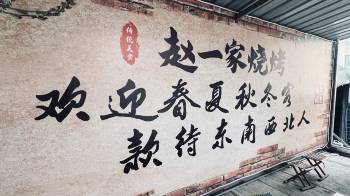 传统美食
赵一家烧烤
欢迎春夏秋冬客
款待东南西北人